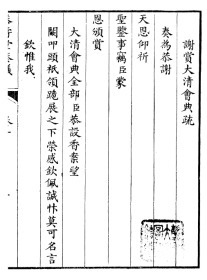 謝賞大清會典疏
奏為恭謝
天恩仰祈
聖鑒事竊臣蒙
恩頒賞
大清會典全部臣恭設香案望
闕叩頭祇領跪展之下榮感欽佩誠忭莫可名言
欽惟我